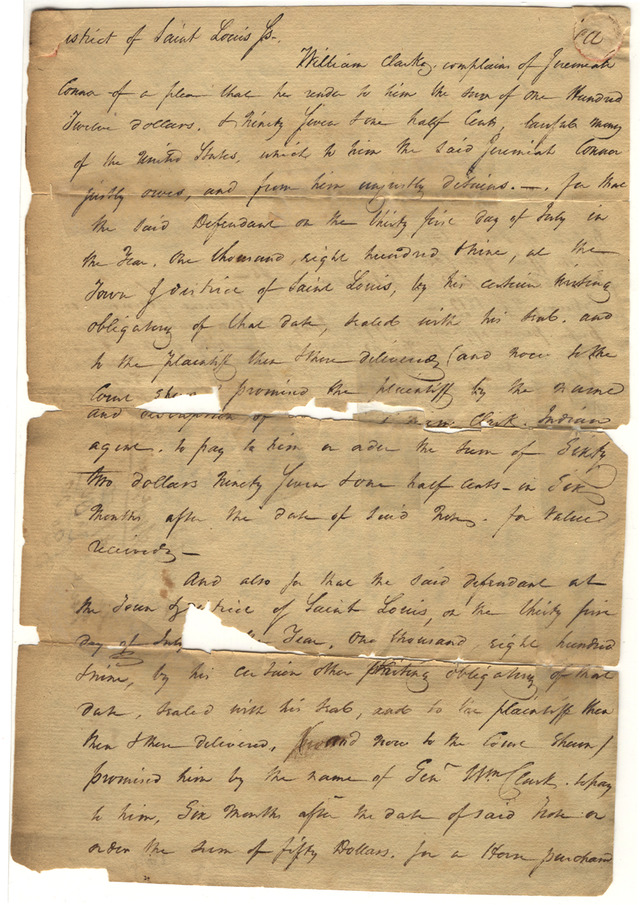 istrict of Saint Louis Ss.
William Clarke, complains of Jeremiah
Connor of a plea that he render to him the sum of one Hundred
Twelve dollars, & Ninety Seven & one half Cents, lawful money
of the United States, which to him the said Jeremiah Connor
justly owes, and from him unjustly detains. —. for that
the said Defendant on the thirty first day of July in
the Year, One thousand, eight hundred & nine, at the
Town & district of Saint Louis, by his certain writing
obligatory of that date, sealed with his seal. and
to the plaintiff then & there delivered (and now to the
Court promised the plaintiff by the name
and of Clark. Indian
agent. to pay to him or order the sum of Sixty
two dollars Ninety Seven & one half Cents - in Six
Months after the date of said Note. for Value
received —
And also for that the said defendant at
the Town & district of Saint Louis, on the thirty first
day of July Year, One thousand, eight hundred
& nine, by his certain other writing obligatory of that
date, sealed with his seal, and to the plaintiff then
then & there delivered, and now to the Court shewn /
promised him by the name of Genl Wm Clark. to pay
to him, Six Months after the date of said Note or
order the sum of fifty Dollars. for a Horse purchased